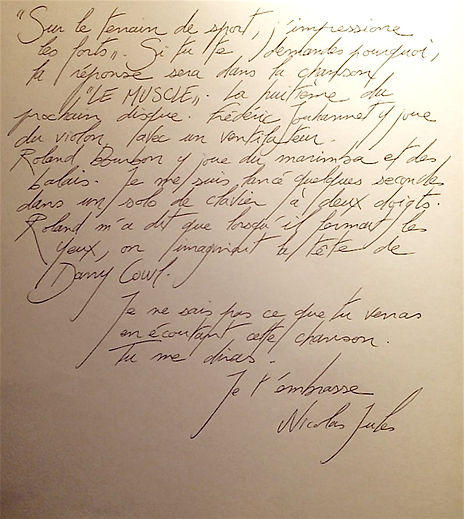 "Sur le terrain de sport, j'impressionne
les forts". Si tu te demandes pourquoi,
la réponse sera dans la chanson
"LE MUSCLE". La huitième du
prochain disque. Frédéric Jouhannet y joue
du violon, avec un ventilateur.
Roland Bourbon y joue du marimba et des
balais. Je me suis lancé quelques secondes
dans un solo de clavier à deux doigts.
Roland m'a dit que lorsqu'il fermait les
yeux, on imaginait la tête de
Darry Cowl.
Je ne sais pas ce que tu verras
en écoutant cette chanson.
Tu me diras.
Je t'embrasse
Nicolas Jules